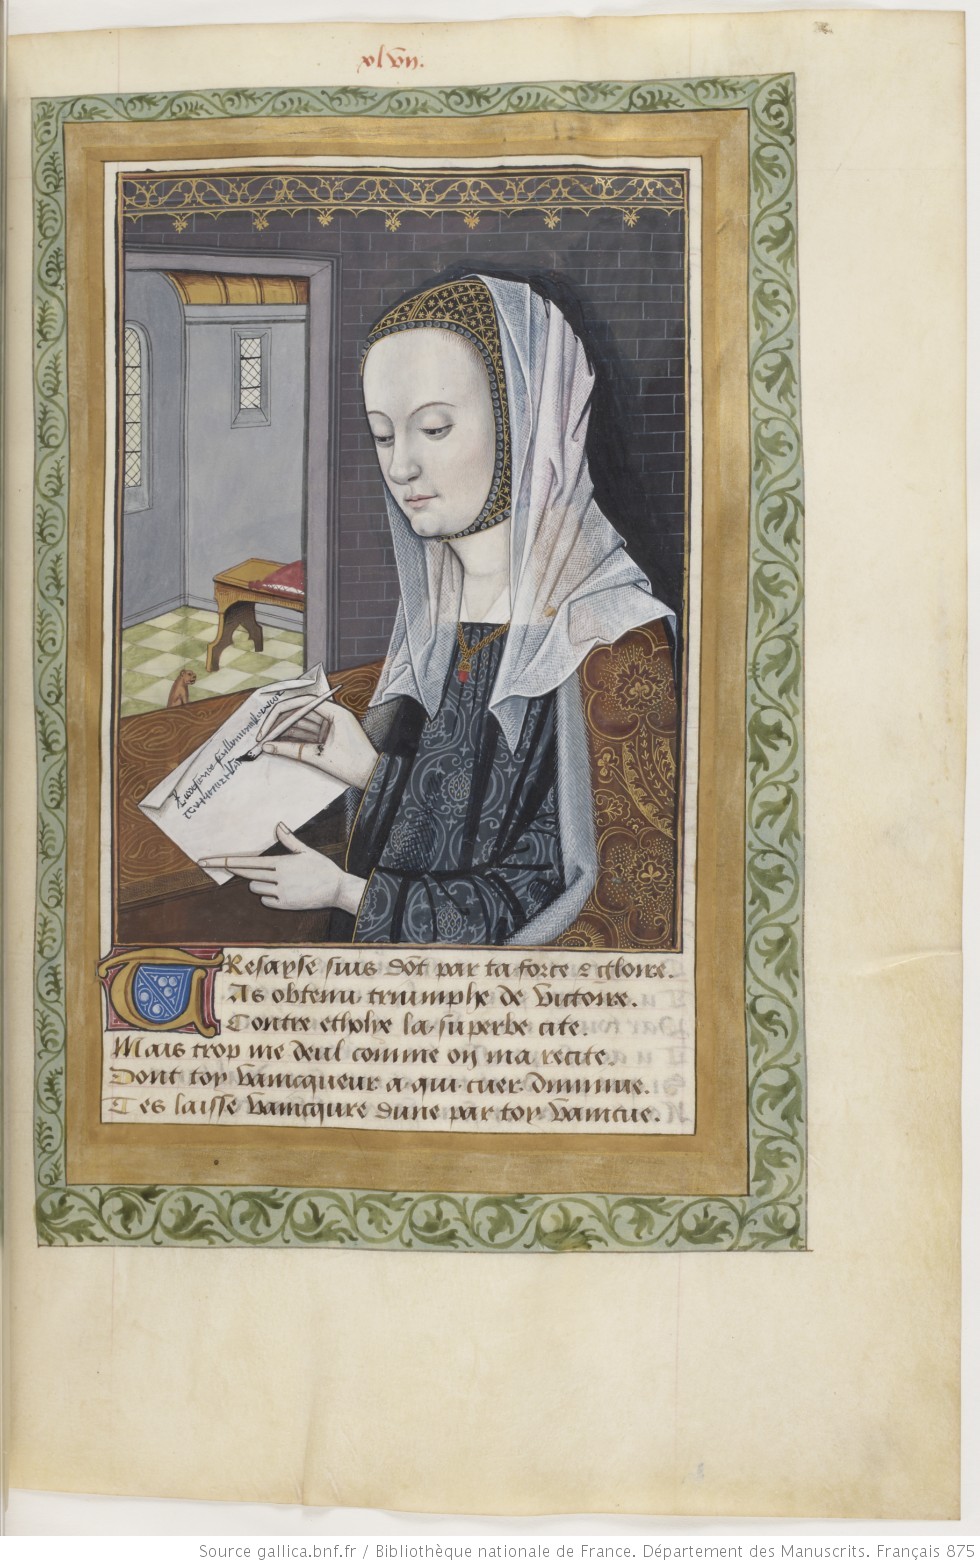 xlvii.
TResayse suis dõt par ta force & gloire.
As obtenu triumphe de victoire.
Contre etholye la superbe cite.
Mais trop me deul comme on ma recite.
Dont toy vaincqueur a qui cuer diminue.
Tes laisse vaincqure dune par toy vaincue.
Source gallica.bnf.fr / Bibliothèque nationale de France. Département des Manuscrits. Français 875